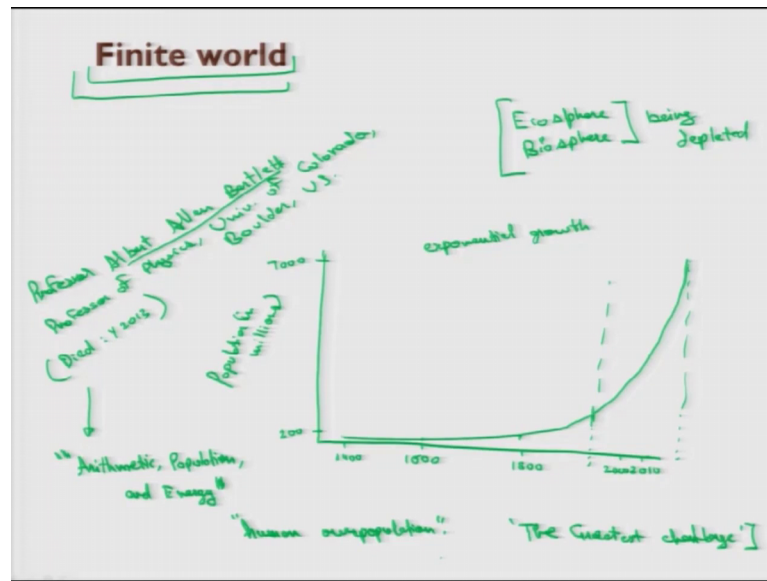 Finite world
Ecosphere
Biosphere
being
depleted
Professor Albert Allen Bartlett
Professor of Physics, Univ. of Colorado,
Boulder, U.S.
(Died: Y 2013)
"Arithmetic, Population,
and Energy"
exponential growth
7000
Population in
millions)
200
1400 1600 1800 2000 2010
"Human overpopulation". 'The Greatest challenge']